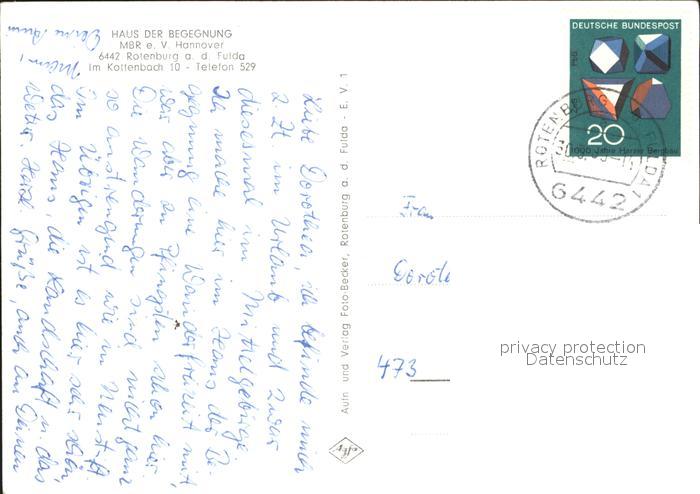 HAUS DER BEGEGNUNG
MBR e. V. Hannover
6442 Rotenburg a. d. Fulda
Im Kottenbach 10 - Telefon 529
Liebe Dorothea, ich befinde mich
z. Zt. im Urlaub und zwar
diesesmal im Mittelgebirge.
Ich mache hier im Haus der Be-
gegnung eine Wanderfreizeit mit,
war aber an Pfingsten schon hier.
Die Wanderungen sind nicht ganz
so anstrengend wie in
Im Übrigen ist es hier sehr schön,
das Haus, die Landschaft u. das
Wetter. Herzl. Grüße, auch an Deinen
Mann!
Aufn. und Verlag Foto-Becker, Rotenburg a. d. Fulda - E. V. 1
DEUTSCHE BUNDESPOST
20
1000 Jahre Harzer Bergbau
ROTENBURG FULDA 1
6442
Frau
Doroth
473
privacy protection
Datenschutz